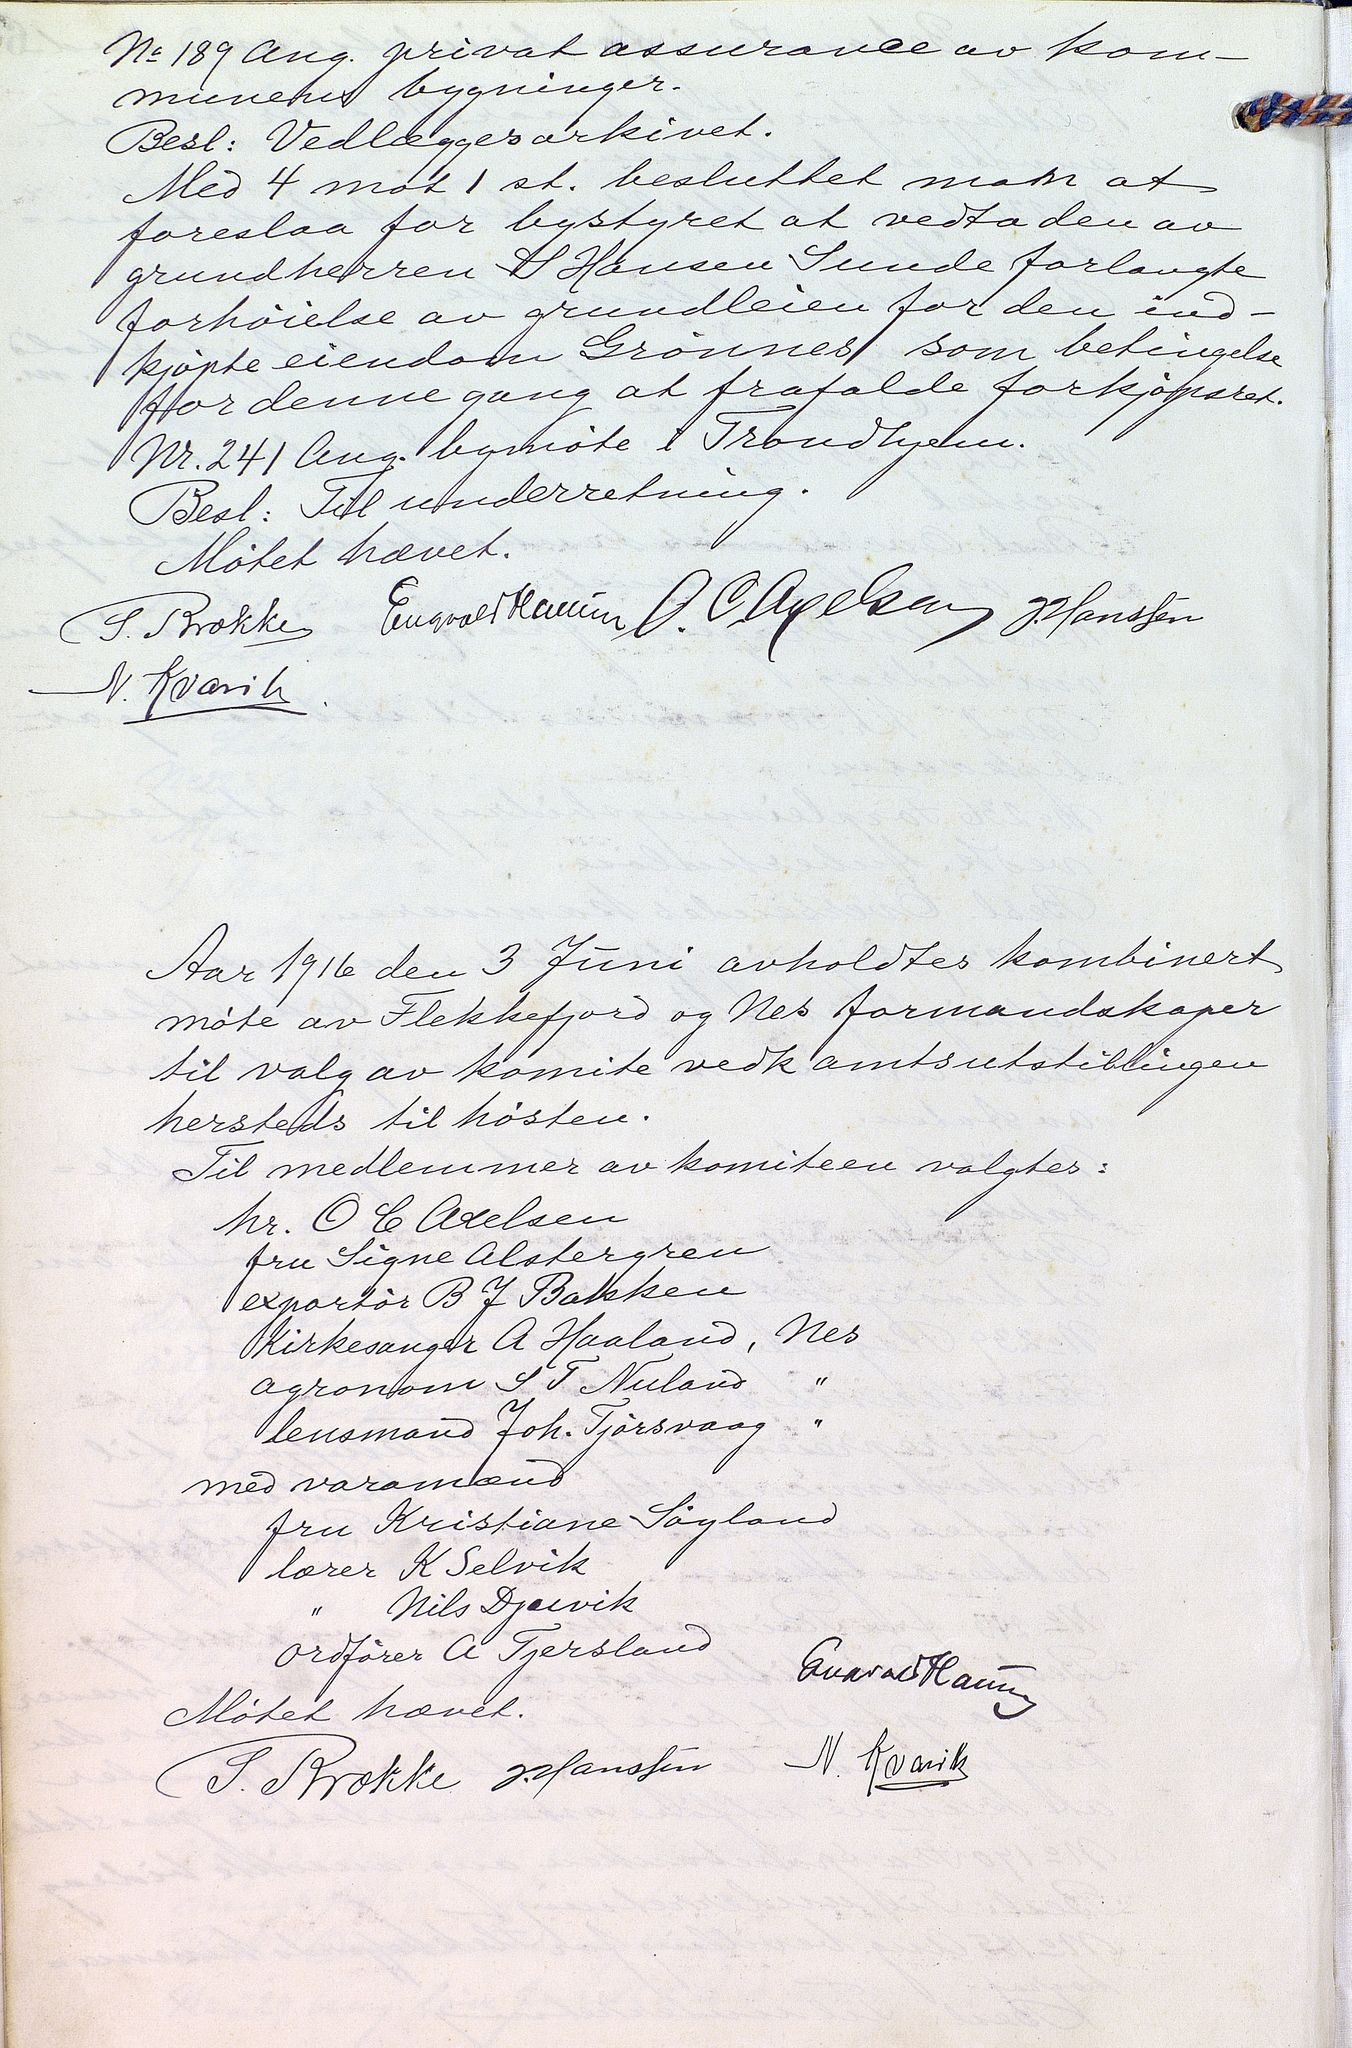 No 189 Ang. privat assurance av kom-
munens bygninger.
Besl: Vedlægges arkivet.
Med 4 mot 1 st. besluttet man at
foreslaa for bystyret at vedta den av
grundherren S Hansen Sunde forlangte
forhöielse av grundleien for den ind-
kjöpte eiendom Grönnes som betingelse
for denne gang at frafalde forkjöpsret.
Nr. 241 Ang. bymöte i Trondhjem.
Besl: Til underretning.
Mötet hævet.
S. Brække Engvald Hanssen O. C. Axelsen J. Hanssen
N. Kvavik
Aar 1916 den 3 Juni avholdtes kombinert
möte av Flekkefjord og Nes formandskaper
til valg av komite vedk amtsutstillingen
hersteds til hösten.
Til medlemmer av komiteen valgtes:
hr. O C Axelsen
fru Signe Alstergren
exportör B J Bakken
Kirkesanger A Haaland, Nes
agronom S T Nuland "
lensmand Joh. Tjörsvaag "
med varamænd
fru Kristiane Söyland
lærer K Selvik
" Nils Djuvik
Ordförer A Tjersland
Mötet hævet.
Engvald
S. Brække J. Hanssen N. Kvavik